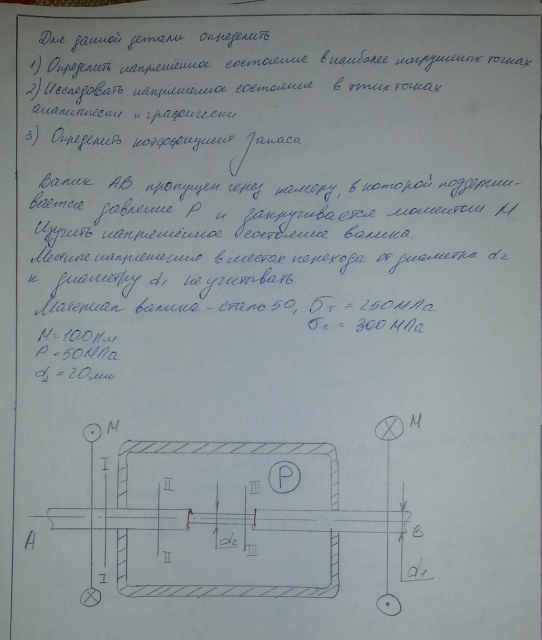 Для данной детали определить
1) Определить напряжённое состояние в наиболее нагруженных точках
2) Исследовать напряжённое состояние в этих точках
аналитически и графически
3) Определить коэффициент запаса
Валик AB пропущен через камеру, в которой поддержи-
вается давление P и закручивается моментом M.
Изучить напряжённое состояние валика.
Местные напряжения в местах перехода от диаметра d2
к диаметру d1 не учитывать
Материал валика - сталь 50, σт = 250 МПа
σс = 300 МПа
M = 100 Нм
P = 50 МПа
d2 = 20 мм
M
M
I
II
III
P
A
d2
B
I
II
III
d1